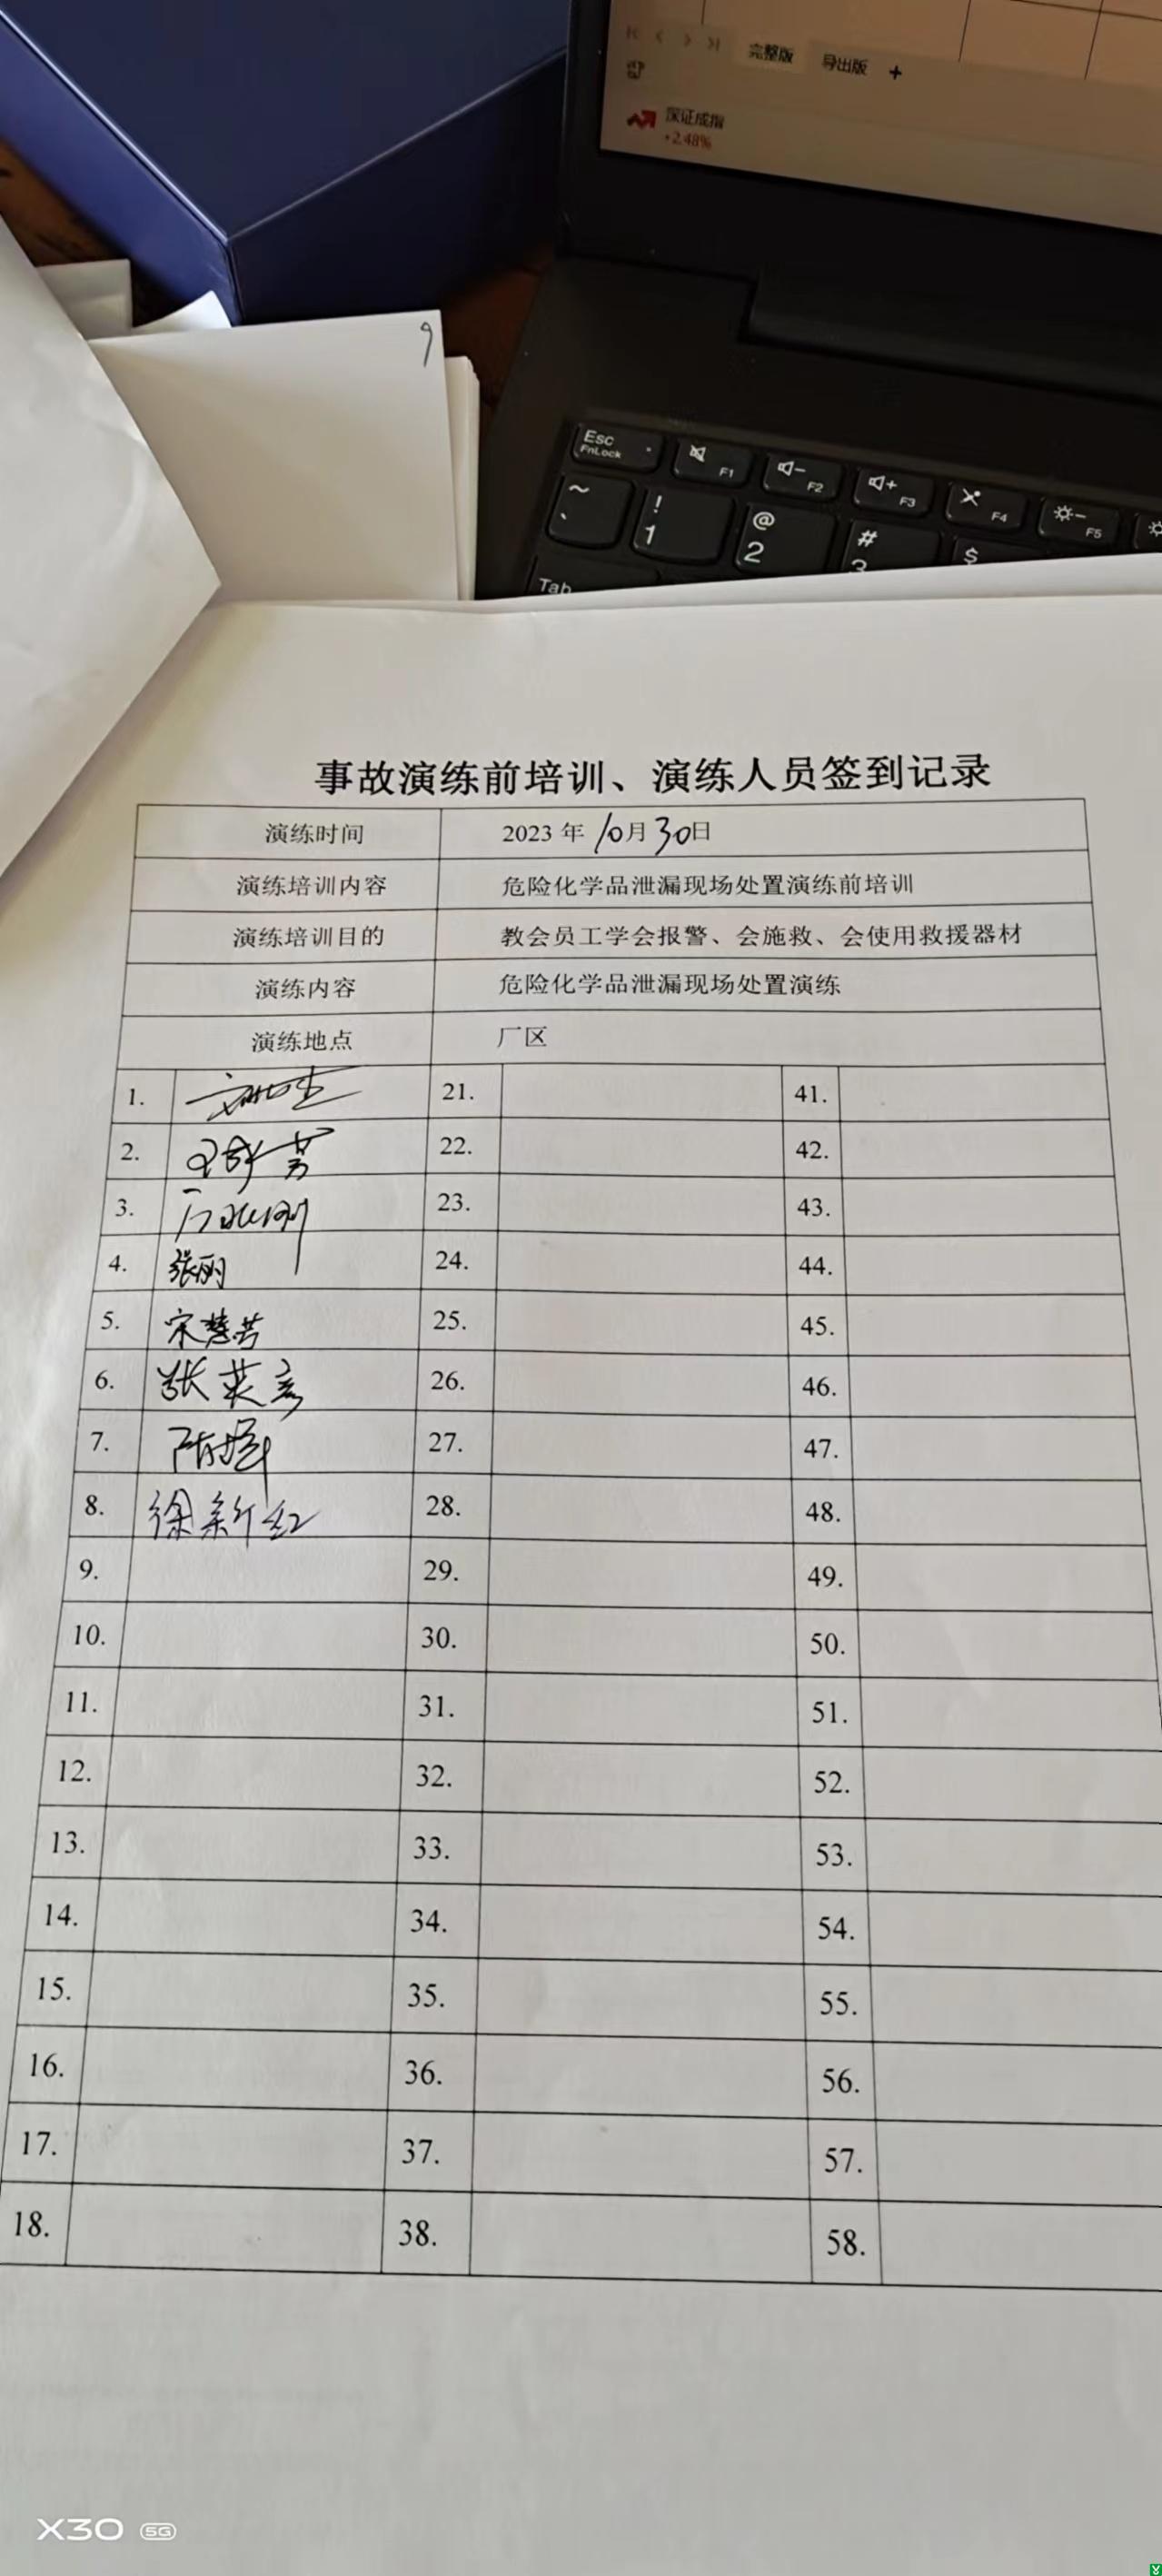 完整版 导出版 +
深证成指
+2.48%
9
Esc
FnLock
F1
F2
F3
F4
F5
~
`
!
1
@
2
#
3
$
Tab
事故演练前培训、演练人员签到记录
演练时间 2023 年 10月 30日
演练培训内容 危险化学品泄漏现场处置演练前培训
演练培训目的 教会员工学会报警、会施救、会使用救援器材
演练内容 危险化学品泄漏现场处置演练
演练地点 厂区
1. 21. 41.
2. 22. 42.
3. 23. 43.
4. 张丽 24. 44.
5. 宋慧芳 25. 45.
6. 张英彦 26. 46.
7. 27. 47.
8. 徐新红 28. 48.
9. 29. 49.
10. 30. 50.
11. 31. 51.
12. 32. 52.
13. 33. 53.
14. 34. 54.
15. 35. 55.
16. 36. 56.
17. 37. 57.
18. 38. 58.
X30 5G